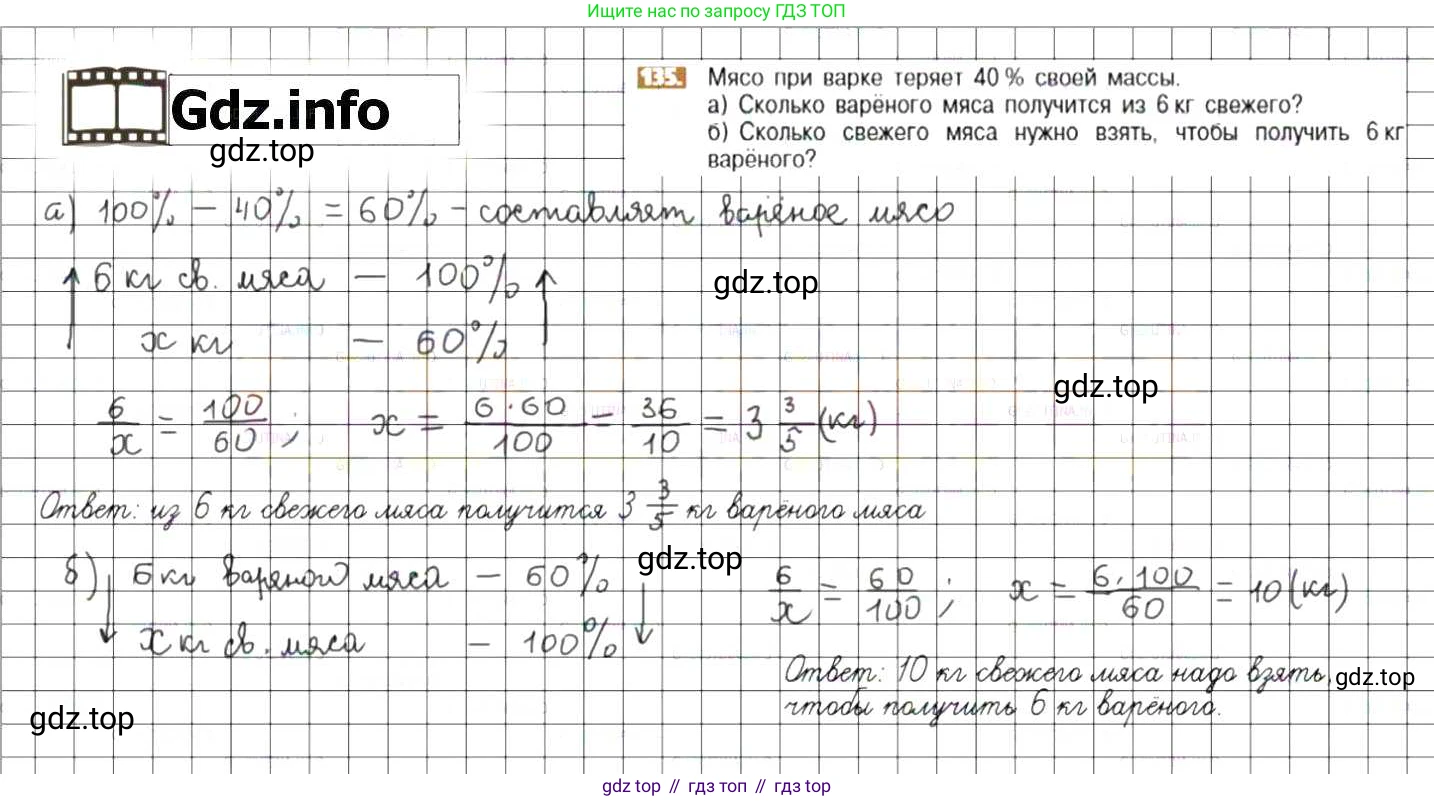 Ищите нас по запросу ГДЗ ТОП
Gdz.info
gdz.top
135. Мясо при варке теряет 40 % своей массы.
а) Сколько варёного мяса получится из 6 кг свежего?
б) Сколько свежего мяса нужно взять, чтобы получить 6 кг
варёного?
а) 100% - 40% = 60% - составляет варёное мясо
6 кг св. мяса — 100%
gdz.top
х кг — 60%
gdz.top
6/х = 100/60; х = 6·60/100 = 36/10 = 3 3/5 (кг)
Ответ: из 6 кг свежего мяса получится 3 3/5 кг варёного мяса
gdz.top
б) 6 кг вареного мяса — 60%
х кг св. мяса — 100%
6/х = 60/100; х = 6·100/60 = 10 (кг)
Ответ: 10 кг свежего мяса надо взять,
gdz.top
чтобы получить 6 кг варёного.
gdz.top
gdz top // гдз топ // gdz top